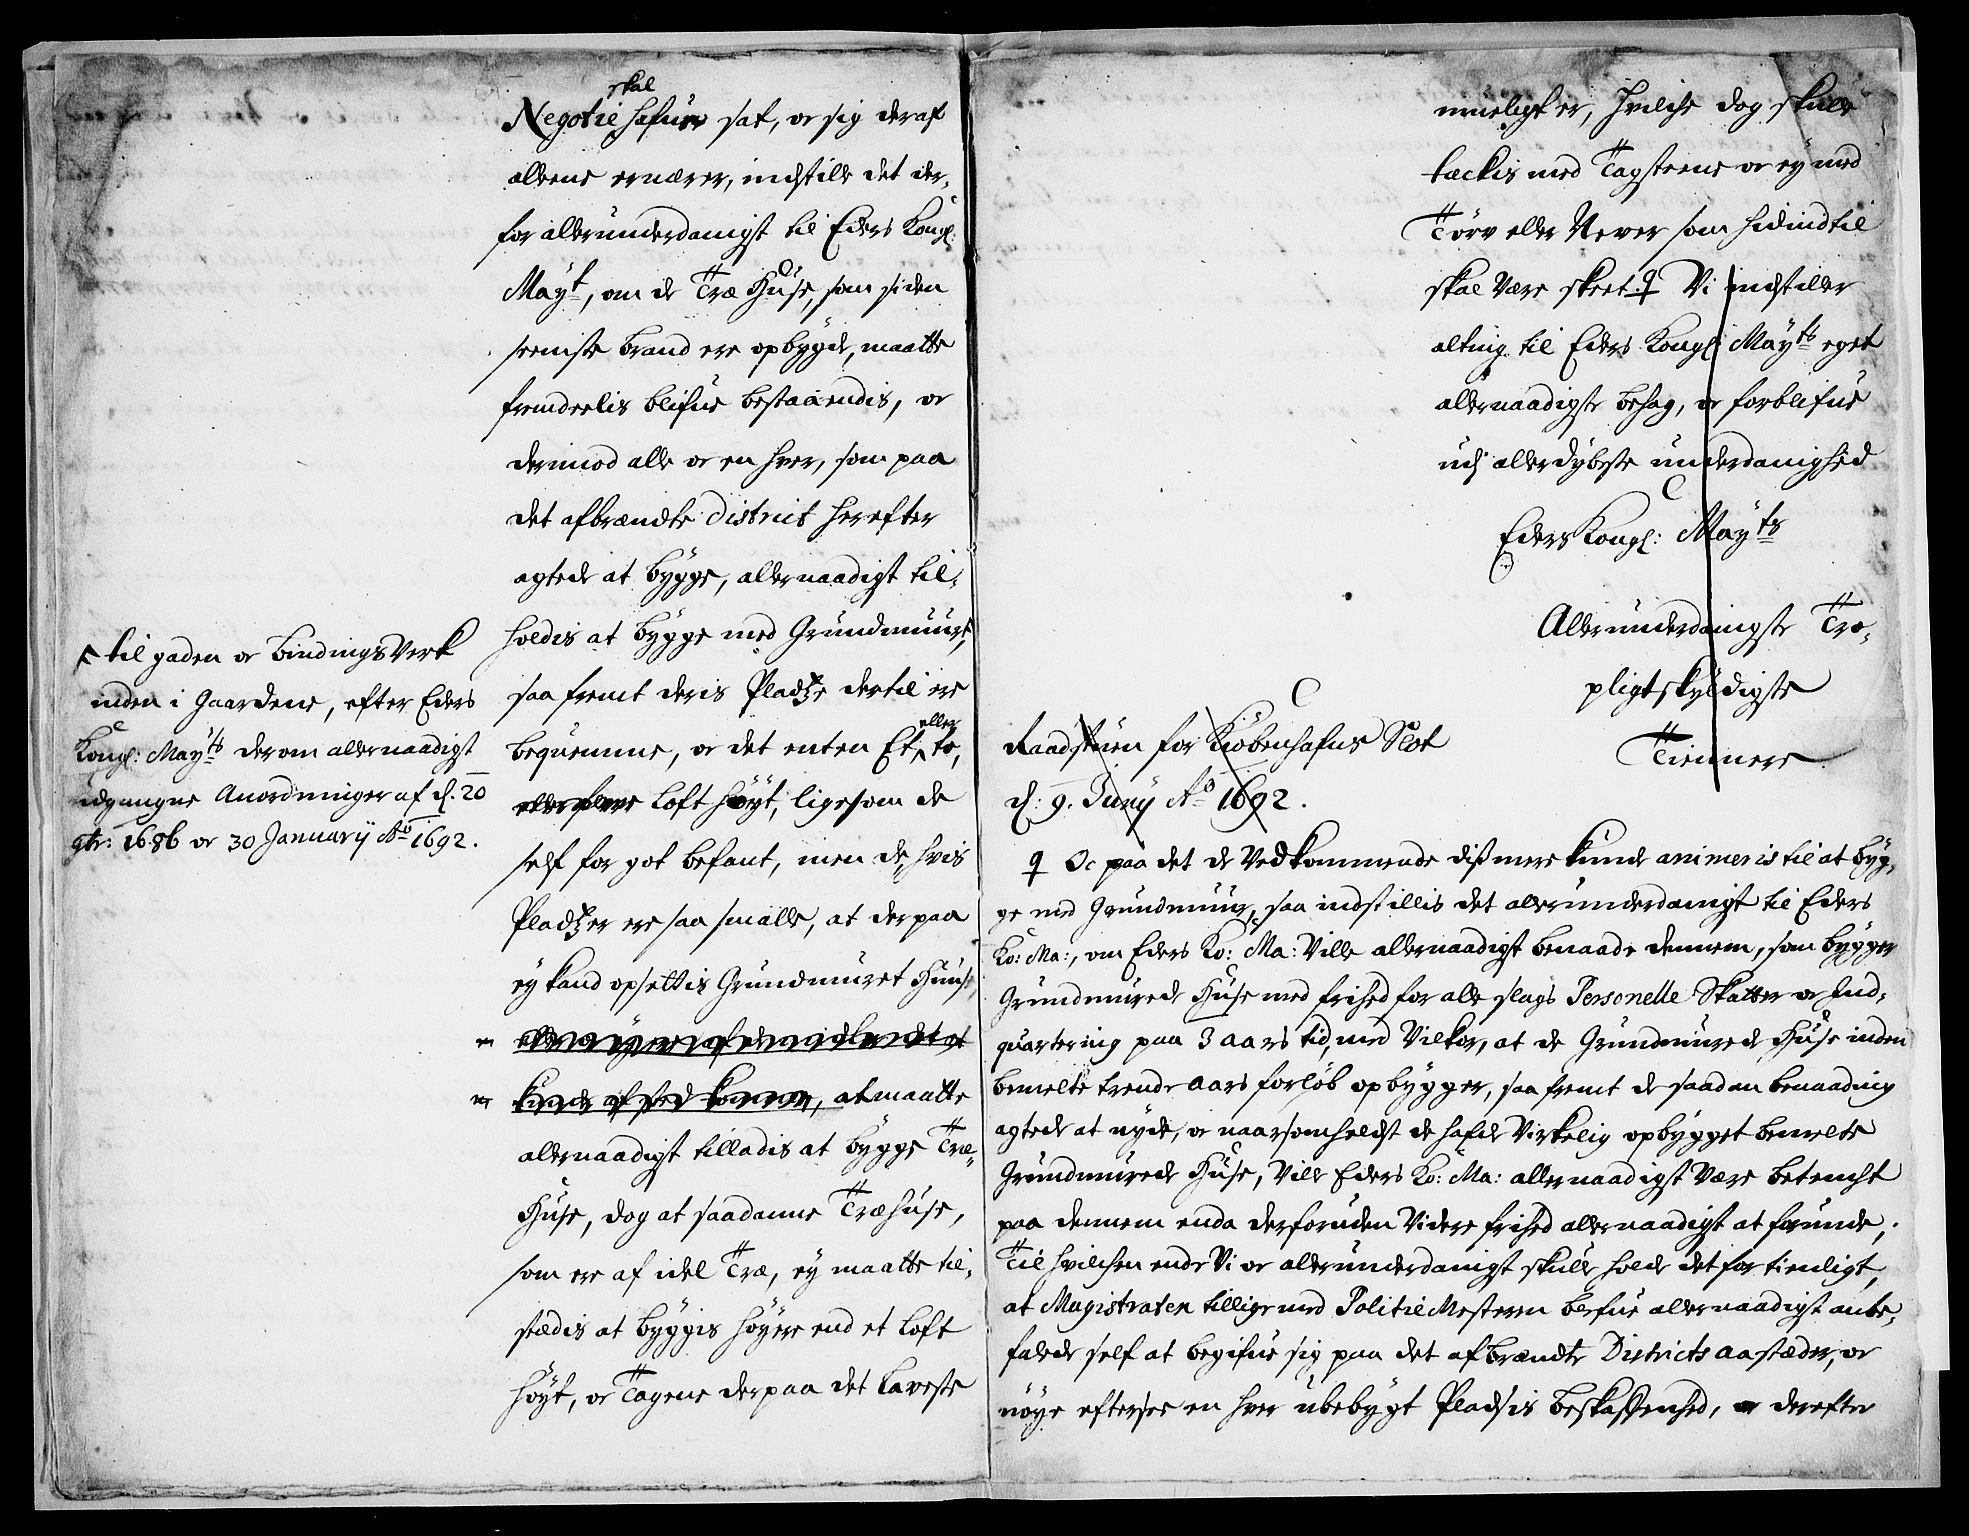 skal
Negotie hafuer sat, oc sig deraf
alleene ernærer, indstille det der,
for allerunderdanigst til Eders Kongl:
Mayt, om de Træ Huse, som siden
seeniste brand ere opbygde, maatte
fremdeelis blifue bestaaendis, oc
derimod alle oc en hver, som paa
det afbrændte District herefter
agtede at bygge, allernaadigst til,
holdis at bygge med Grundmuure,
saa fremt deris Pladtze dertil ere
eller
bequemme, oc det enten Et, to,
eller flere Loft höyt, ligesom de
self for got befant, men de, hvis
Pladtzer ere saa smalle, at derpaa
ej kand opsettis Grundmuret Huuse
kunde afsted komme, at maatte
allernaadigst tilladis at bygge Træ,
Huse, dog at saadanne Træhuse,
som ere af idel Træ, ej maatte til,
stædis at byggis höyere end et Loft
höyt, oc Tagene derpaa det Laveste
til gaden oc bindings Verk
inden i Gaardene, efter Eders
Kongl: Mayts derom allernaadigst
udgangne Anordninger af d. 20
9br: 1686 oc 30 Januarij Ao 1692.
mueligst er, hvilche dog skulle
tæckis med Tagsteene oc ej med
Törv eller Never som hidindtil
skal være skeet. Vi indstiller
alting til Eders Kongl Mayts eget
allernaadigste behag, oc forblifue
udj allerdybste underdanighed
Eders Kongl: Mayts
Allerunderdanigste Tro,
pligtskyldigste
Tiennere
Raadstuen for Kiöbenhafns Slot
d: 9. Junij Ao 1692.
Oc paa det de Vedkommende dissmere kunde animeris til at byg,
ge med Grundmuur, saa indstillis det allerunderdanigst til Eders
Ko: Ma:, om Eders Ko: Ma: Ville allernaadigst benaade dennem, som bygger
Grundmurede Huse med frihed for alle slags Personelle Skatter oc Ind,
quartering paa 3 aars tid, med Vilkor, at de Grundmurede Huse inden
bemelte trende aars forlöb opbygger, saa fremt de saadan benaading
agtede at nyde, oc naarsomhelst de hafde Virkelig opbygget bemelte
Grundmurede Huse, Ville Eders Ko: Ma: allernaadigst være betencht
paa dennem enda derforuden Videre frihed allernaadigst at forunde,
Til hvilchen ende Vi oc allerunderdanigst skulle holde det for tienligt,
at Magistraten tillige med Politie Mesteren blefue allernaadigst anbe,
falede self at begifue sig paa det afbrændte Districts aastæder, oc
nöye efterse en hver ubebygt Pladsis beskaffenhed, oc derefter